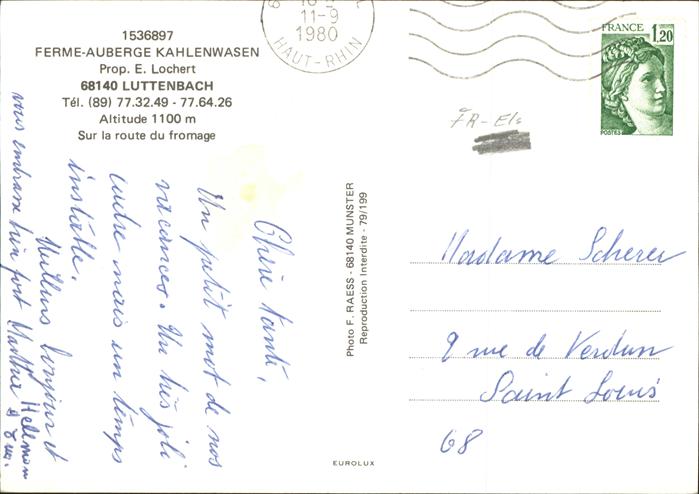 1536897
FERME-AUBERGE KAHLENWASEN
Prop. E. Lochert
68140 LUTTENBACH
Tél. (89) 77.32.49 - 77.64.26
Altitude 1100 m
Sur la route du fromage
11-9
1980
HAUT-RHIN
FRANCE
1,20
POSTES
FR - Els
Chère Tanti,
Un petit mot de nos
vacances. Un très joli
cadre mais un temps
instable.
Meilleurs bonjour et
vous embrasse bien fort Marthe
Photo F. RAESS - 68140 MUNSTER
Reproduction Interdite - 79/199
Madame Scherer
9 rue de Verdun
Saint Louis
68
EUROLUX